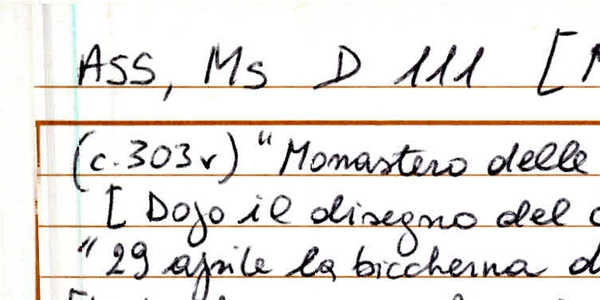 ASS, Ms D 111 [
(c. 303v) "Monastero delle
[ Dopo il disegno del
"29 aprile la biccherna